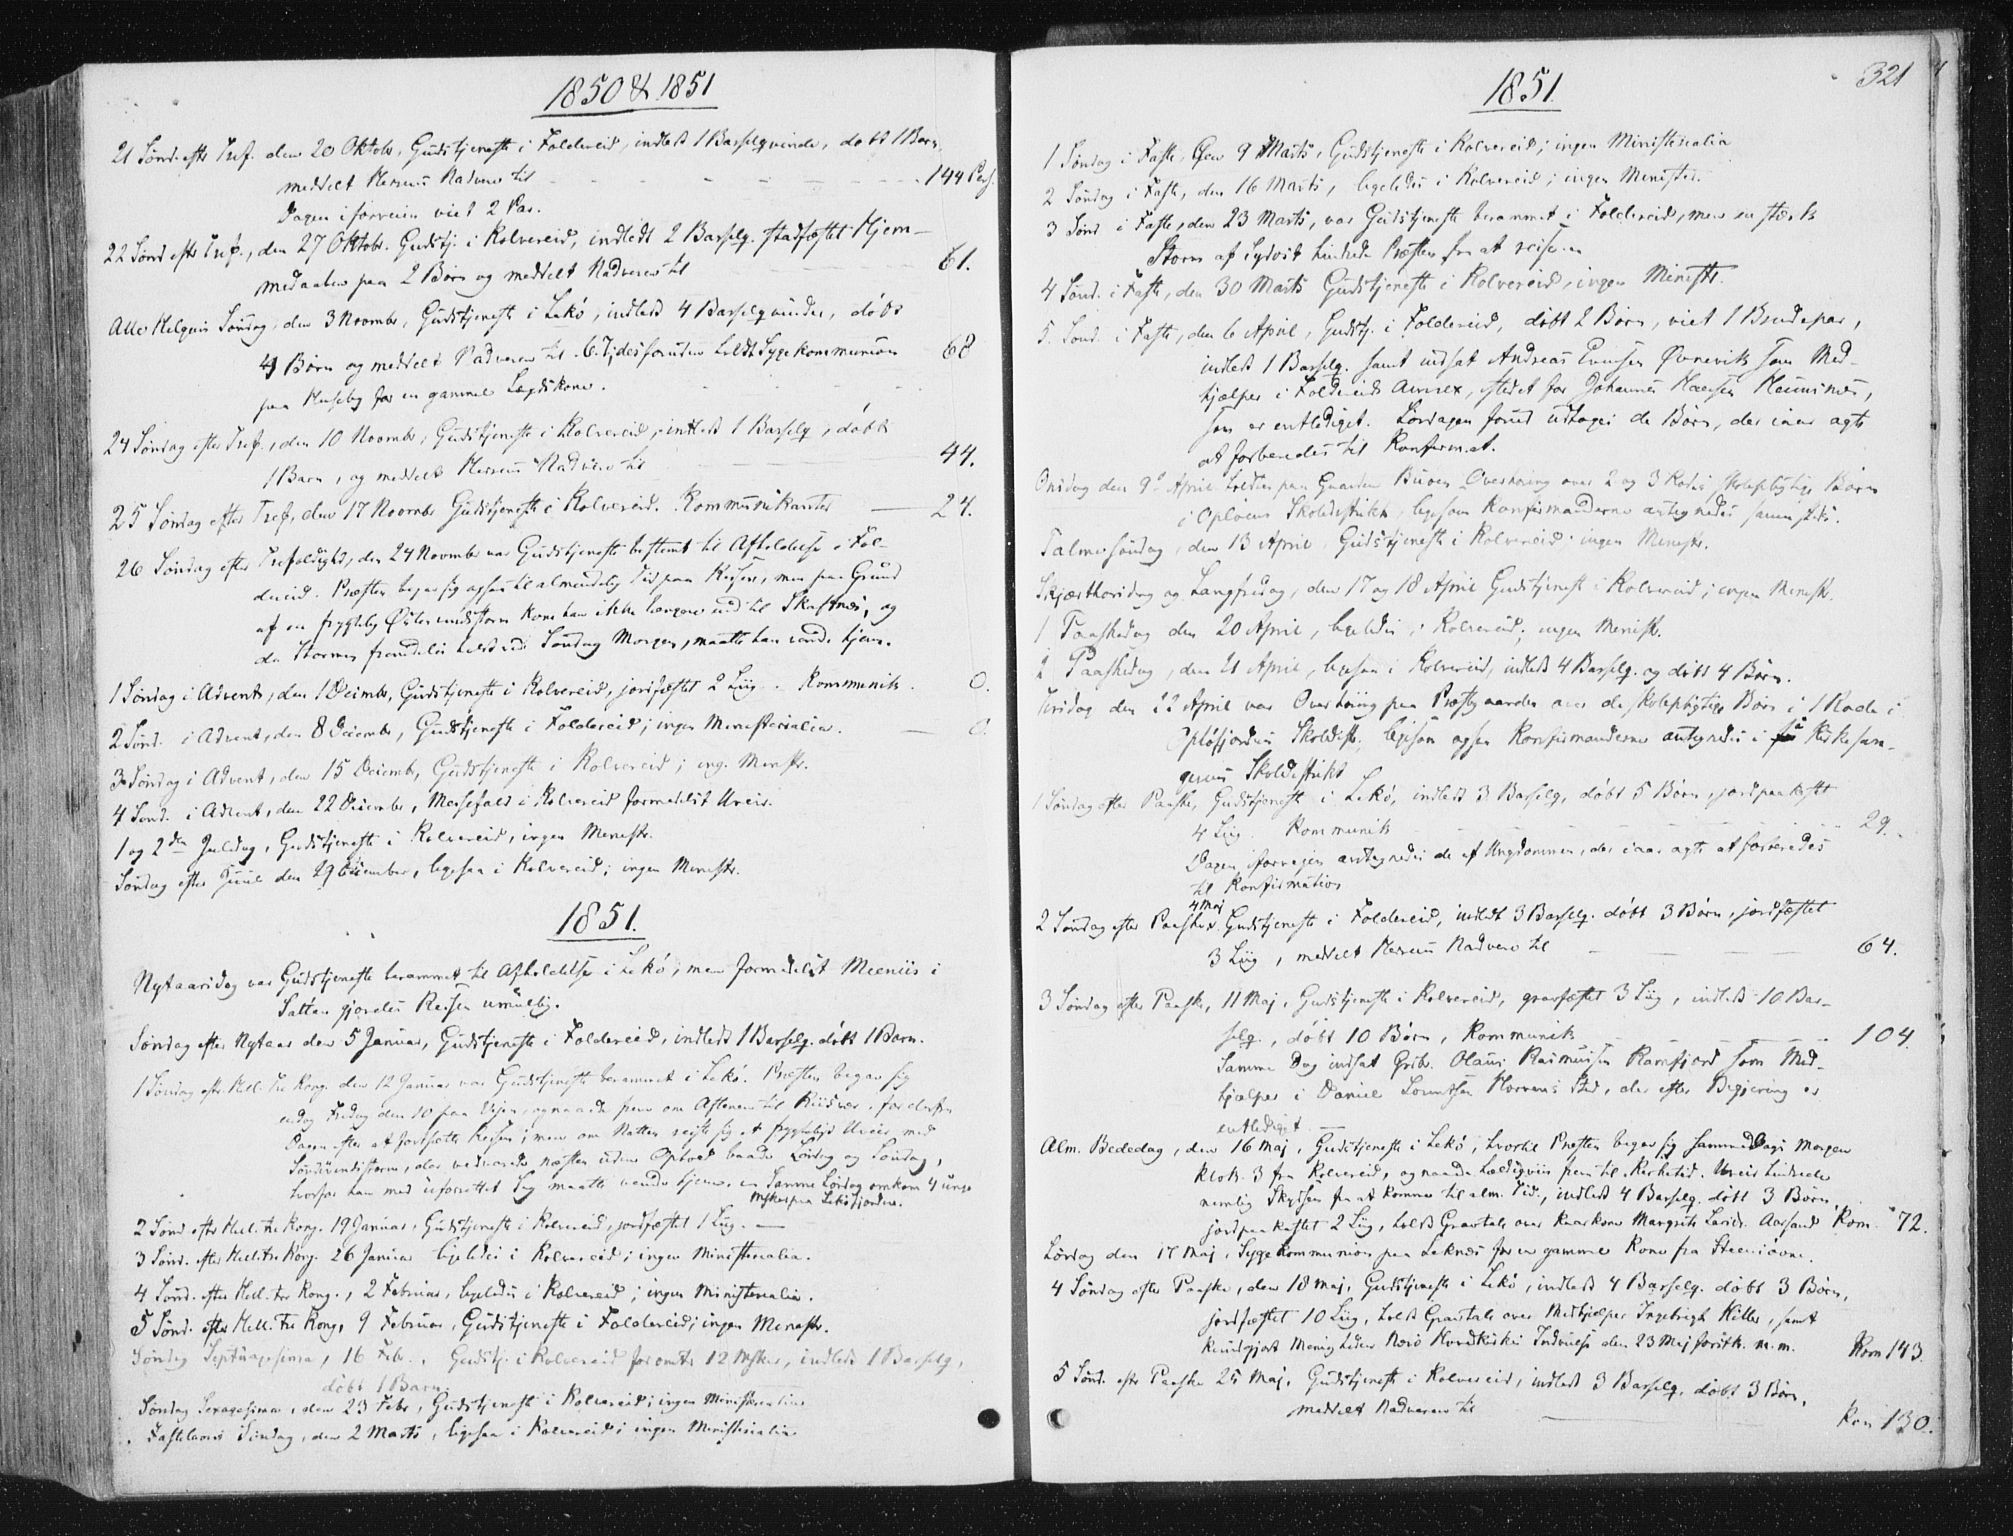 1850 & 1851
21 Sönd. efter Tref. den 20 Oktobr, Gudstjeneste i Foldereid, indledt 1 Barselqvinde, döbt 1 Barn,
meddelt Herrens Nadvere til - - - - 144 Pers.
Dagen iforveien viet 2 Par.
22 Sönd. efter Tref., den 27 Oktobr. Gudstj. i Kolvereid, indledt 2 Barselq. stadfæstet Hjem-
medaaben paa 2 Börn og meddelt Nadveren til 61.
Alle Helgens Söndag, den 3 Novembr, Gudstjeneste i Lekö, indledt 4 Barselqvinder, döbt
4 Börn og meddelt Nadveren til 67; desforuden holdt Sygekommunion 68
paa Huseby for en gammel Lægdskone.
24 Söndag efter Tref., den 10 Novembr, Gudstjeneste i Kolvereid, indledt 1 Barselq, döbt
1 Barn, og meddelt Herrens Nadvere til 44.
25 Söndag efter Tref, den 17 Novembr Gudstjeneste i Kolvereid. Kommunikanter — 24.
26 Söndag efter Trefoldighd, den 24 Novembr var Gudstjeneste bestemt til Afholdelse i Fol-
dereid. Præsten begav sig ogsaa til almindelig Tid paa Reisen, men paa Grund
af en frygtelig Östenvindstorm kom han ikke længere end til Skaftnæs, og
da Stormen fremdeles holdt ved Söndag Morgen, maatte han vende hjem.
1 Söndag i Advent, den 1 Decembr, Gudstjeneste i Kolvereid, jordfæstet 2 Liig. Kommunik. 0.
2 Sönd. i Advent, den 8 Decembr, Gudstjeneste i Foldereid; ingen Ministerialia. — 0.
3 Söndag i Advent, den 15 Decembr, Gudstjeneste i Kolvereid; ing. Ministr.
4 Sönd. i Advent, den 22 Decembr, Messefald i Kolvereid formedelst Uveir.
1 og 2den Juledag, Gudstjeneste i Kolvereid, ingen Ministr.
Söndag efter Juul den 29 December, ligesaa i Kolvereid; ingen Ministr.
1851.
Nytaarsdag var Gudstjeneste berammet til Afholdelse i Lekö, men formedelst Meeniis i
Salten gjordes Reisen umuelig.
Söndag efter Nytaar den 5 Januar, Gudstjeneste i Foldereid, indledt 1 Barselq. döbt 1 Barn.
1 Söndag efter Hell. Tre Kong. den 12 Januar var Gudstjeneste berammet i Lekö. Præsten begav sig
endog Fredag den 10 paa Veien, og naaede frem om Aftenen til Riisvær, for derfra
Dagen efter at fortsætte Reisen; men om Natten reiste sig et frygteligt Uveir med
Söndvindsstorm, der vedvarede næsten uden Ophold baade Löverdag og Söndag,
hvorfor han med uforrettet Sag maatte vende hjem. Samme Lördag omkom 4 unge
Mskr paa Lekösfjorden.
2 Sönd. efter Hell. tre Kong. 19 Januar, Gudstjeneste i Kolvereid, jordfæstet 1 Liig. —
3 Sönd. efter Hell. Tre Kong. 26 Januar ligeledes i Kolvereid; ingen Ministerialia.
4 Sönd. efter Hell. tre Kong., 2 Februar, ligeledes i Kolvereid; ingen Ministerialia.
5 Sönd. efter Hell. Tre Kong, 9 Februar, Gudstjeneste i Foldereid; ingen Ministr.
Söndag Septuagesima, 16 Febr., Gudstj. i Kolvereid for omtr. 12 Mskr, indledt 1 Barselq,
döbt 1 Barn.
Söndag Sexagesima, den 23 Febr, Gudstjeneste i Kolvereid; ingen Ministerialia
Fastelavns Söndag, den 2 Marts, ligesaa i Kolvereid; ingen Ministerialia
1851 321
1 Söndag i Faste, den 9 Marts, Gudstjeneste i Kolvereid; ingen Ministerialia
2 Söndag i Faste, den 16 Marts, ligeledes i Kolvereid; ingen Minister.
3 Sönd i Faste, den 23 Marts, var Gudstjeneste berammet i Foldereid, men en stærk
Storm af Sydost hindrede Præsten fra at reise.
4 Sönd. i Faste, den 30 Marts Gudstjeneste i Kolvereid, ingen Ministr.
5. Sönd. i Faste, den 6 April, Gudstj. i Foldereid, döbt 2 Börn, viet 1 Brudepar,
indledt 1 Barselq. samt indsat Andreas Evensen Övrevik som Med-
hjælper i Foldereids Annex, istedet for Johannes Hansen
som er entlediget. Löverdagen forud udtoges de Börn, der iaar agte
at forberedes til Konfirmat.
Onsdag den 9de April holdtes paa Gaarden Overhöring over 2 og 3 Rodes skolepligtige Börn
i Oploens Skoledistrikt, ligesom Konfirmanderne antegnedes sammesteds.
Palmesöndag, den 13 April, Gudstjeneste i Kolvereid ingen Ministr.
Skjærthorsdag og Langfredag, den 17 og 18 April Gudstjeneste i Kolvereid; ingen Ministr.
1 Paaskedag den 20 April, ligeledes i Kolvereid; ingen Ministr.
2 Paaskedag, den 21 April, ligesaa i Kolvereid, indledt 4 Barselq. og döbt 4 Börn.
Tirsdag den 22 April var Overhöring paa Præstegaarden over de skolepligtige Börn i 1 Rode i
Oplöfjordens Skoledistr. ligesom ogsaa Konfirmanderne antegnedes i Kirkesan-
gerens Skoledistrikt
1 Söndag efter Paaske, Gudstjeneste i Lekö, indledt 3 Barselq, döbt 5 Börn, jordpaakastet
4 Liig. Kommunik 29.
Dagen iforveien antegnedes de af Ungdommen, der iaar agte at forberedes
til Konfirmation
4 Maj
2 Söndag efter Paaske, Gudstjeneste i Foldereid, indledt 3 Barselq. döbt 3 Börn, jordfæstet
3 Liig, meddelt Herrens Nadvere til — 64.
3 Söndag efter Paaske, 11 Maj, Gudstjeneste i Kolvereid, gravfæstet 3 Liig, indledt 10 Bar-
selq., döbt 10 Börn, Kommunik — 104.
Samme Dag indsat Grdb. Olaus Rasmussen Ramfjord som Med-
hjælper i Daniel Lorentsen Horvens Sted, der efter Begjering er
entlediget. —
Alm. Bededag, den 16 Maj, Gudstjeneste i Lekö, hvortil Præsten begav sig samme Dags Morgen
Klok. 3 fra Kolvereid, og naaede heldigviis frem til Kirketid. Uveir hindrede
nemlig Skydsen fra at komme til alm. Tid., indledt 4 Barselq. döbt 3 Börn,
jordpaakastet 2 Liig, holdt Gravtale over Margrete Larsd. Aarsand Kom. 72.
Lördag den 17 Maj, Sygekommunion paa Leknæs for en gammel Kone fra
4 Söndag efter Paaske, den 18 Maj, Gudstjeneste i Lekö, indledt 4 Barselq. döbt 3 Börn,
jordfæstet 10 Liig, holdt Gravtale over Medhjælper Ingebrigt samt
kundgjort Menigheden Nærö Hovedkirkes Indvielse den 23 Maj förstk. m.m. Kom 143.
5 Sönd. efter Paaske 25 Maj, Gudstjeneste i Kolvereid, indledt 3 Barselq. döbt 3 Börn,
meddelt Nadveren til — Kom 130.